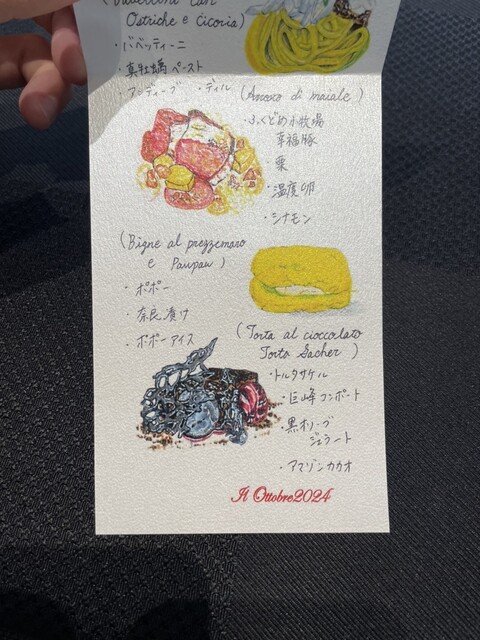 Ostriche e cicoria)
・バベッティーニ
・真牡蠣ペースト
・アンディーブ ・ディル
(Ancoro di maiale)
・ふくどめ小牧場
幸福豚
・栗
・温度卵
・シナモン
(Bigne al prezzemaro
e Pawpaw)
・ポポー
・奈良漬け
・ポポーアイス
(Torta al cioccolato
Torta Sacher)
・トルタサケル
・巨峰コンポート
・黒オリーブ
ジェラート
・アマゾンカカオ
Il Ottobre2024